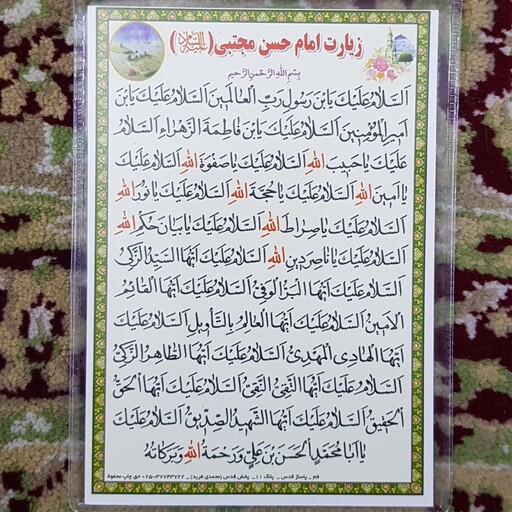 زیارت امام حسن مجتبی (علیه السلام)
بِسْمِ اللهِ الرَّحْمنِ الرَّحیمِ
اَلسَّلامُ عَلَیْكَ یَابْنَ رَسُولِ رَبِّ الْعالَمینَ اَلسَّلامُ عَلَیْكَ یَابْنَ
اَمیرِ الْمُؤْمِنینَ اَلسَّلامُ عَلَیْكَ یَابْنَ فاطِمَةَ الزَّهْراءِ اَلسَّلامُ
عَلَیْكَ یا حَبیبَ اللهِ اَلسَّلامُ عَلَیْكَ یا صَفْوَةَ اللهِ اَلسَّلامُ عَلَیْكَ
یا اَمینَ اللهِ اَلسَّلامُ عَلَیْكَ یا حُجَّةَ اللهِ اَلسَّلامُ عَلَیْكَ یا نُورَ اللهِ
اَلسَّلامُ عَلَیْكَ یا صِراطَ اللهِ اَلسَّلامُ عَلَیْكَ یا بَیانَ حُكْمِ اللهِ
اَلسَّلامُ عَلَیْكَ یا ناصِرَ دینِ اللهِ اَلسَّلامُ عَلَیْكَ اَیُّهَا السَّیِّدُ الزَّكِیُّ
اَلسَّلامُ عَلَیْكَ اَیُّهَا الْبَرُّ الْوَفِیُّ اَلسَّلامُ عَلَیْكَ اَیُّهَا الْقائِمُ
الْاَمینُ اَلسَّلامُ عَلَیْكَ اَیُّهَا الْعالِمُ بِالتَّأْویلِ اَلسَّلامُ عَلَیْكَ
اَیُّهَا الْهادِی الْمَهْدِیُّ اَلسَّلامُ عَلَیْكَ اَیُّهَا الطّاهِرُ الزَّكِیُّ
اَلسَّلامُ عَلَیْكَ اَیُّهَا التَّقِیُّ النَّقِیُّ اَلسَّلامُ عَلَیْكَ اَیُّهَا الْحَقُّ
الْحَقیقُ اَلسَّلامُ عَلَیْكَ اَیُّهَا الشَّهیدُ الصِّدّیقُ اَلسَّلامُ عَلَیْكَ
یا اَبا مُحَمَّدٍ الْحَسَنَ بْنَ عَلِیٍّ وَ رَحْمَةُ اللهِ وَ بَرَكاتُهُ
قم _ پاساژ قدس _ پلاک ۱۱ _ پخش قدس (محمدی فرید) _ ۳۷۷۴۳۷۲۲-۰۲۵ حق چاپ محفوظ